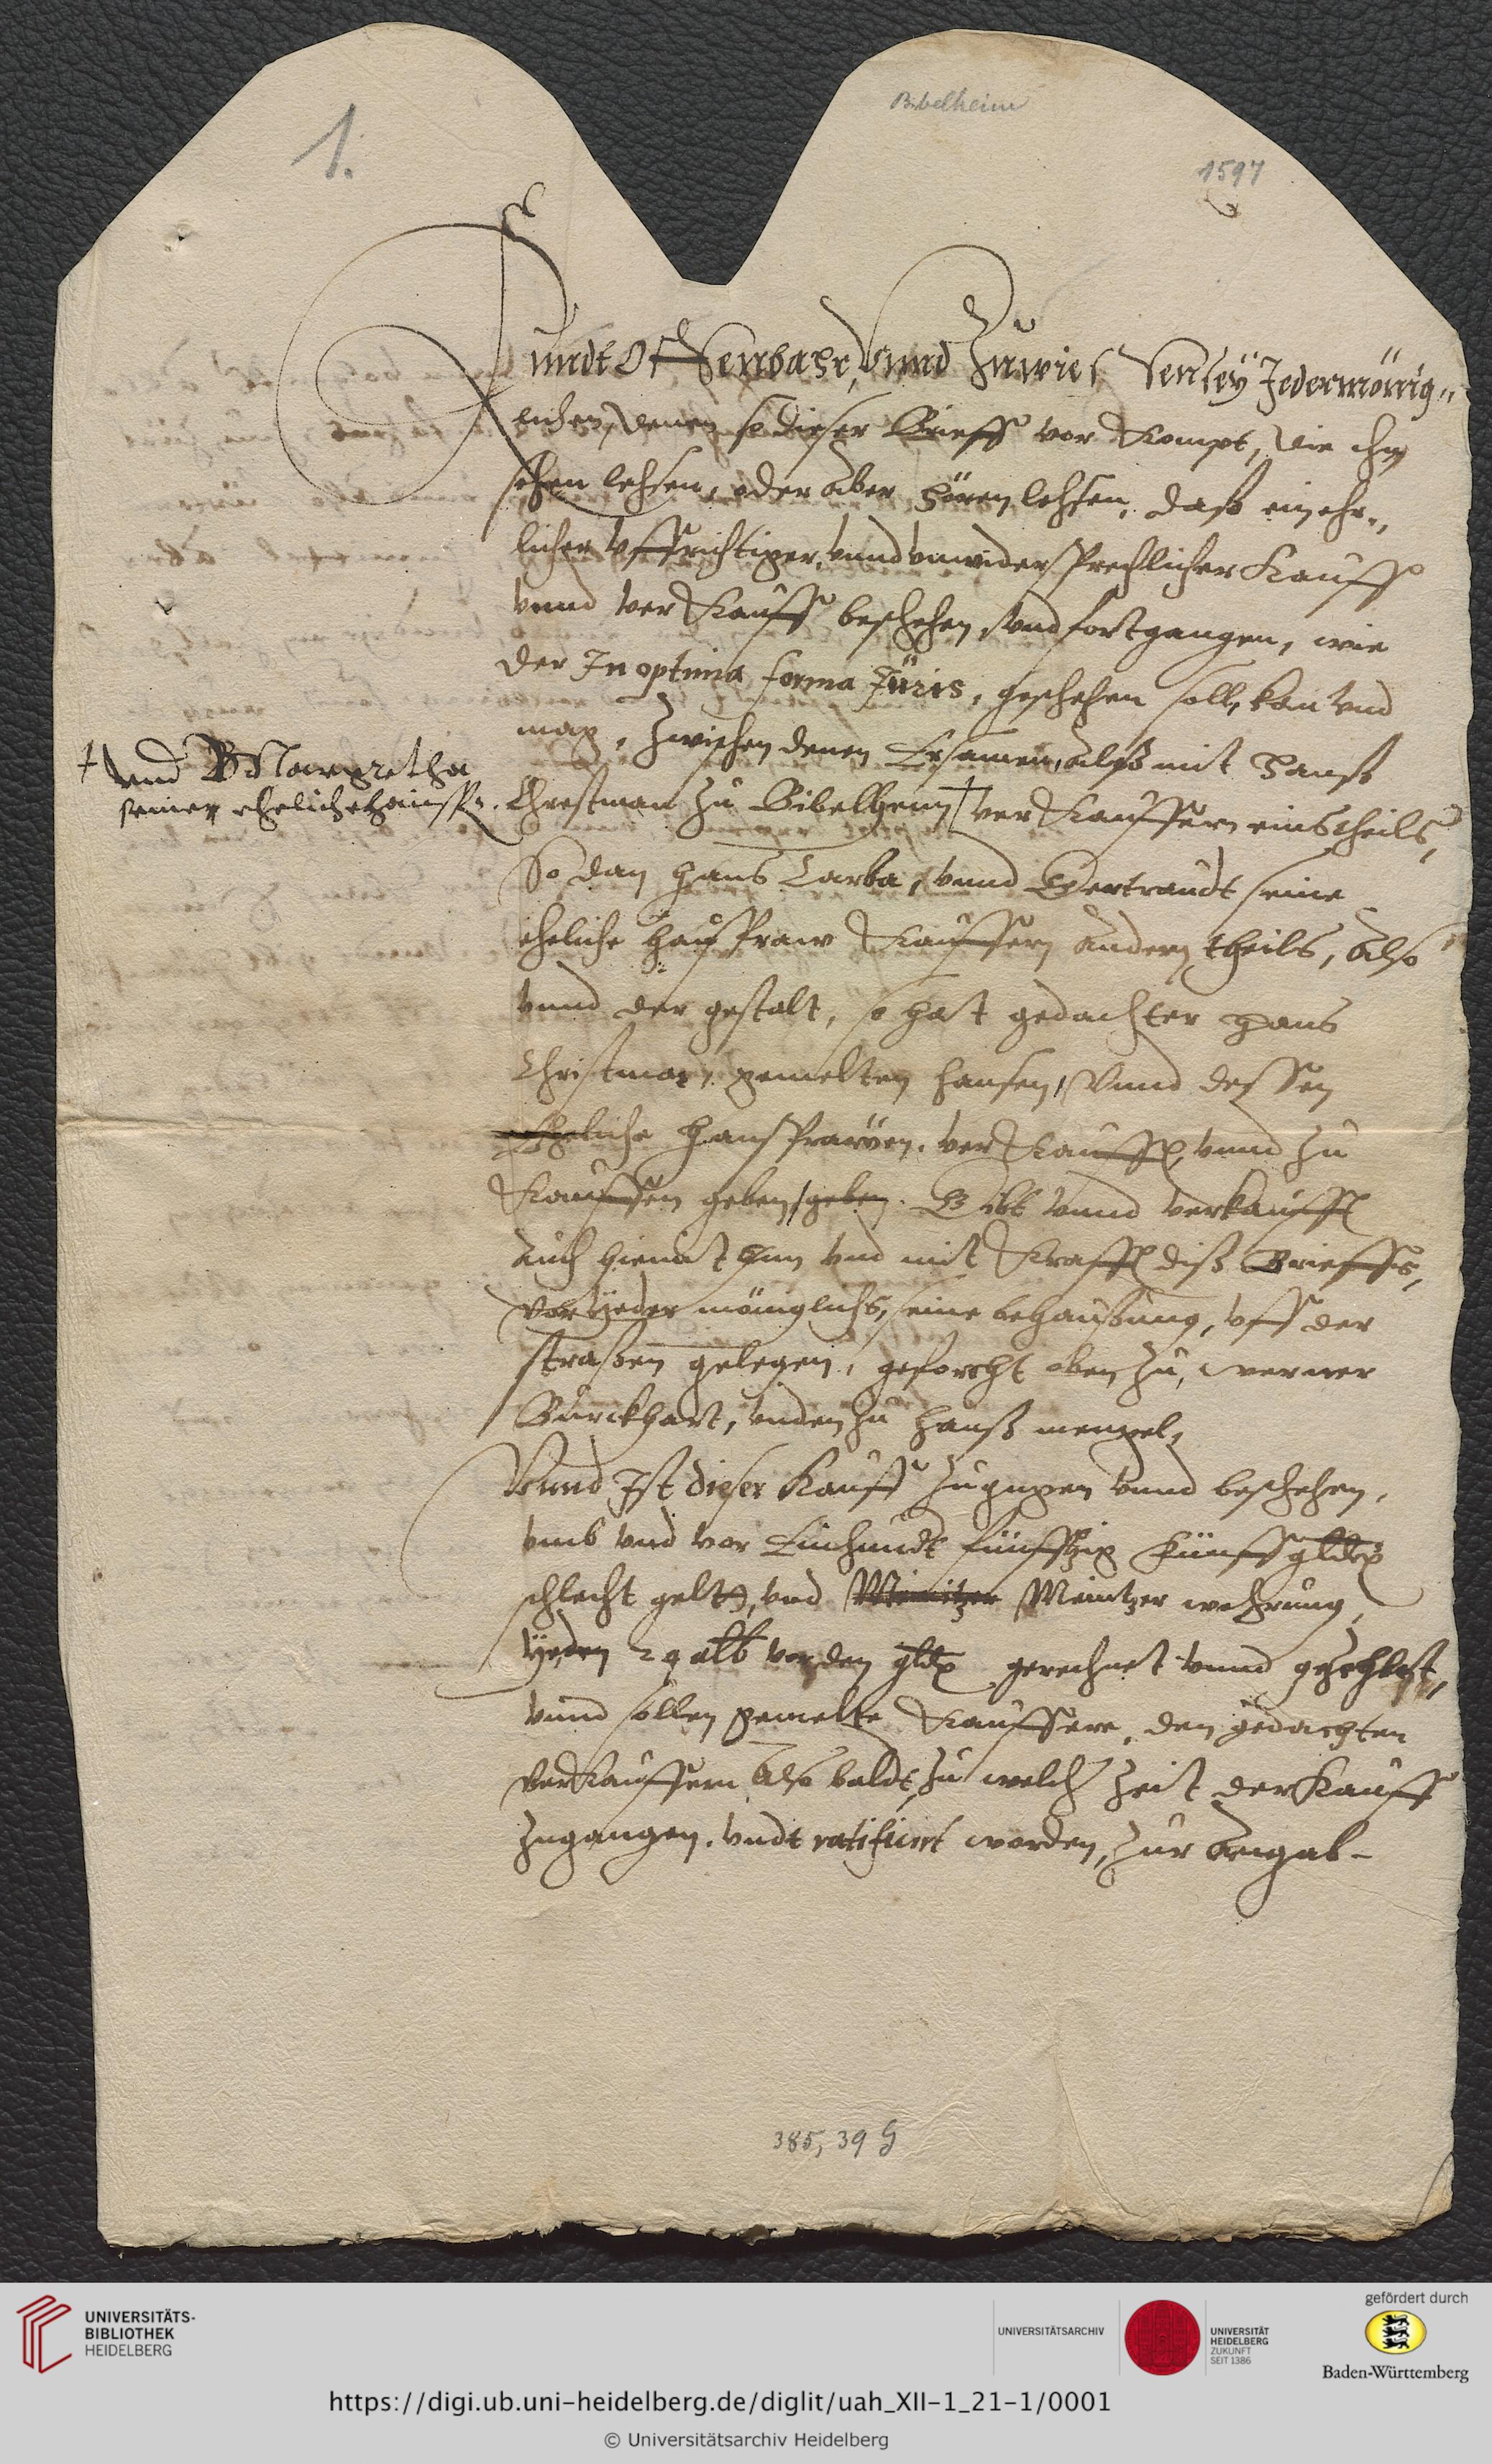 Bibelheim
1.
1597
Kundt Offenbahr, vnnd Zuwießen seÿ Jedermönig„
lichen, denen so dieser Brieff vor Kompt, die ihn
sehen lehsen, oder aber hören lehsen, daß ein ehr„
licher vffrichtiger, vnnd vnwidersprechlicher Kauff
vnnd ver Kauff beschehen, vnd fortgangen, wie
der In optima forma Jüris, geschehen soll, kan vnd
mag, Zwischen denen Ersamen, alß mit Hanß
† vnd Margretha
seiner ehelich haußfr.
Christman zu Bibelheim † ver Kauffern eins theils,
So dan Hans Carba, vnnd Gertraudt seine
eheliche haußfraw Kauffern andern theils, Also
vnnd der gestalt, so hatt gedachter Hans
Christman, gemelten hansen, Vnnd dessen
Eheliche haußfrawen. ver Kaufft, vnnd zu
Kauffen geben, geben. Gibt vnnd verkaufft
auch hiemit Ihnn vnd mit Krafft diß Brieffs,
vor Yeder mönglichs, seine behaußung, vff der
straßen gelegen, geforcht oben zu, werner
Burckhart, vnden zu Hanß mengel,
Vnnd Ist dieser Kauff zugangen vnnd beschehen,
vmb vnd vor Einhundt fünfftzig fünff gulden
schlecht gelts, vnd Meintzer Meintzer wehrung,
Yeden 24 alb vor den gulden gerechnet vnnd gezehlet,
vnnd sollen gemelte Kauffere, den gedachten
ver Kauffern Also baldt, zu welch Zeit der Kauff
zugangen. vndt ratificirt worden, zur Angab-
385, 39 G
UNIVERSITÄTS-
BIBLIOTHEK
HEIDELBERG
UNIVERSITÄTSARCHIV
UNIVERSITÄT
HEIDELBERG
ZUKUNFT
SEIT 1386
gefördert durch
Baden-Württemberg
https://digi.ub.uni-heidelberg.de/diglit/uah_XII-1_21-1/0001
© Universitätsarchiv Heidelberg